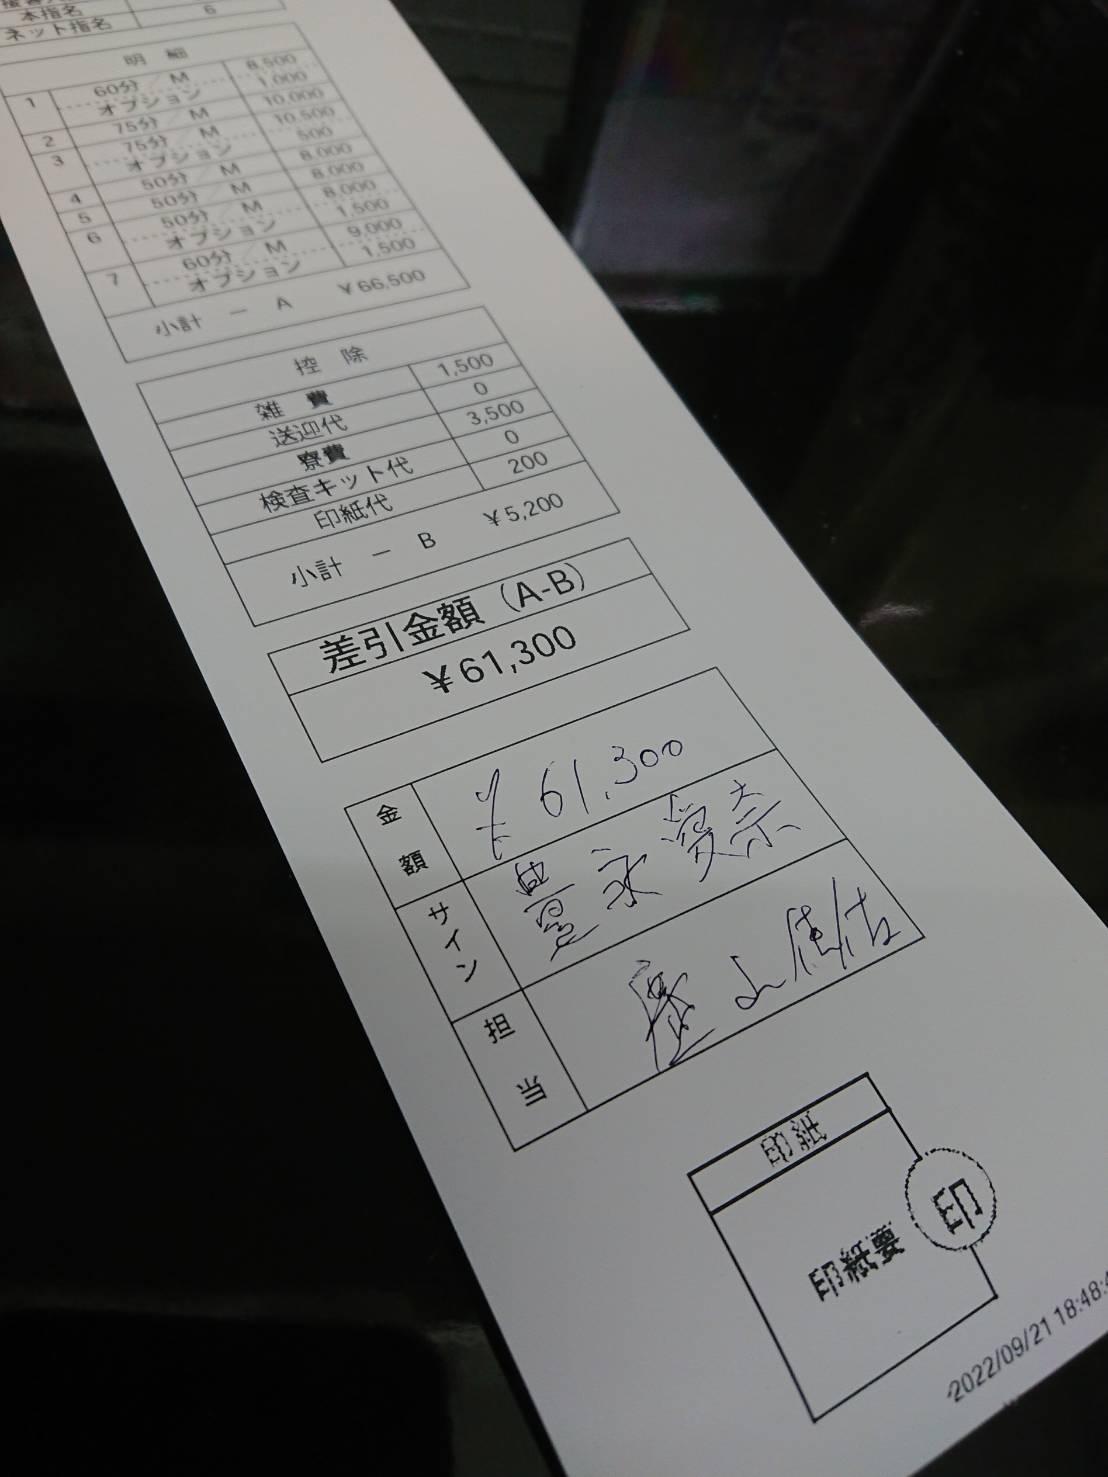 本指名
ネット指名 6
明 細
1 60分／M 8,500
オプション 1,000
2 75分／M 10,000
3 75分／M 10,500
オプション 500
4 50分／M 8,000
5 50分／M 8,000
6 50分／M 8,000
オプション 1,500
7 60分／M 9,000
オプション 1,500
小計 － A ￥66,500
控 除
雑 費 1,500
送迎代 0
寮費 3,500
検査キット代 0
印紙代 200
小計 － B ￥5,200
差引金額（A-B）
￥61,300
金額 ￥61,300
サイン 豊永愛奈
担当
印紙
印紙要
印
2022/09/21 18:48: